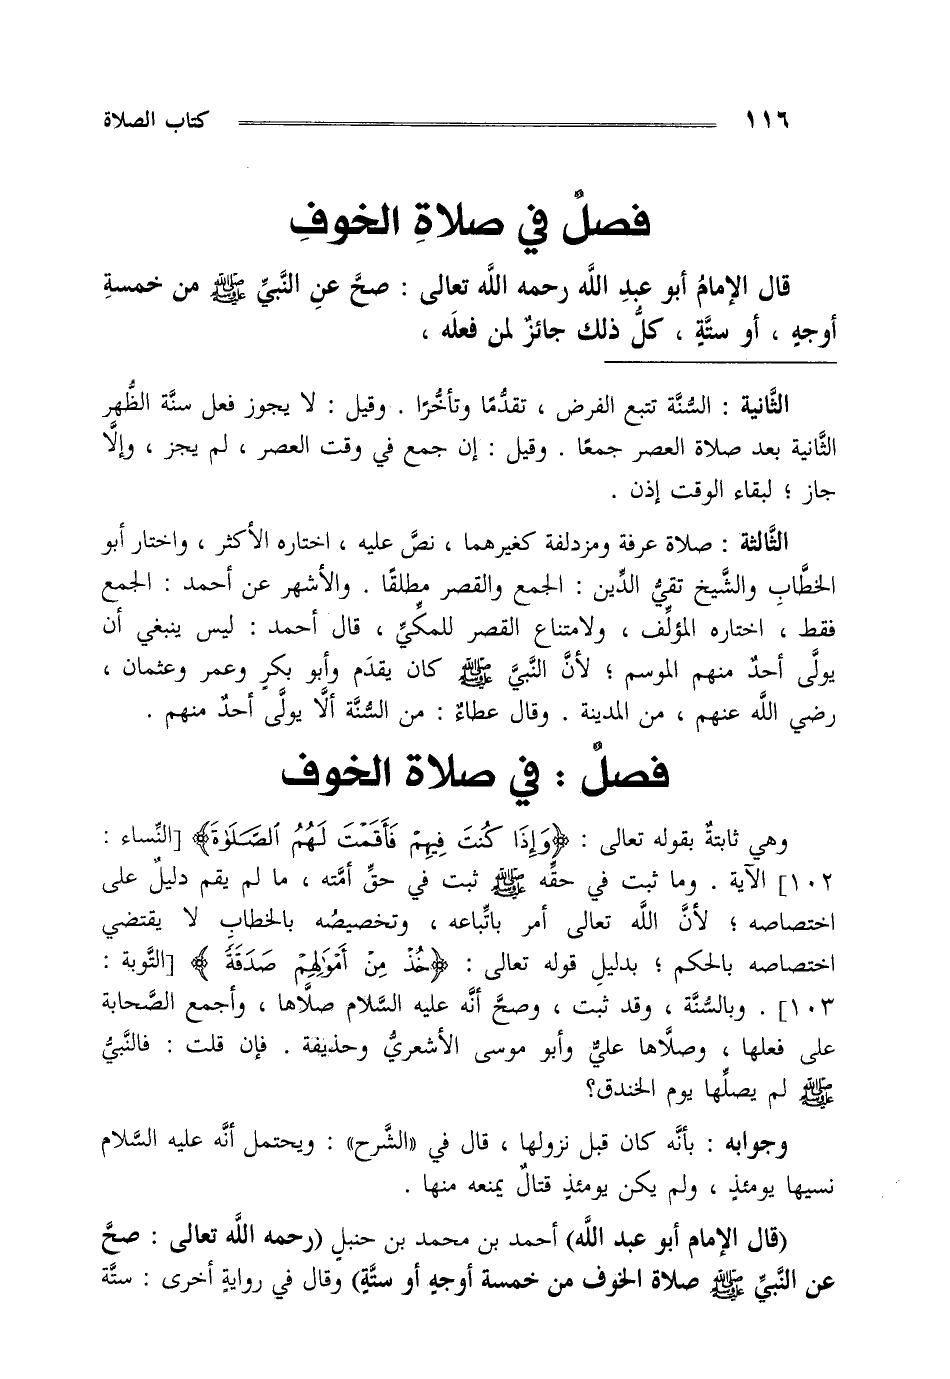 ١١٦ كتاب الصلاة
فصلٌ في صلاةِ الخوفِ
قال الإمامُ أبو عبدِ اللَّه رحمه اللَّه تعالى : صحَّ عنِ النَّبيِّ ﷺ من خمسةِ
أوجهٍ ، أو ستَّةٍ ، كلُّ ذلك جائزٌ لمن فعلَه ،
الثَّانية : السُّنَّة تتبع الفرض ، تقدُّمًا وتأخُّرًا . وقيل : لا يجوز فعل سنَّة الظُّهر
الثَّانية بعد صلاة العصر جمعًا . وقيل : إن جمع في وقت العصر ، لم يجز ، وإلَّا
جاز ؛ لبقاء الوقت إذن .
الثَّالثة : صلاة عرفة ومزدلفة كغيرهما ، نصَّ عليه ، اختاره الأكثر ، واختار أبو
الخطَّابِ والشَّيخ تقيُّ الدِّين : الجمع والقصر مطلقًا . والأشهر عن أحمد : الجمع
فقط ، اختاره المؤلِّف ، ولامتناع القصر للمكِّيِّ ، قال أحمد : ليس ينبغي أن
يولَّى أحدٌ منهم الموسم ؛ لأنَّ النَّبيَّ ﷺ كان يقدَم وأبو بكرٍ وعمر وعثمان ،
رضي اللَّه عنهم ، من المدينة . وقال عطاءٌ : من السُّنَّة ألَّا يولَّى أحدٌ منهم .
فصلٌ : في صلاة الخوف
وهي ثابتةٌ بقوله تعالى : ﴿وَإِذَا كُنتَ فِيهِمْ فَأَقَمْتَ لَهُمُ ٱلصَّلَوٰةَ﴾ [النِّساء :
١٠٢] الآية . وما ثبت في حقِّه ﷺ ثبت في حقِّ أمَّته ، ما لم يقم دليلٌ على
اختصاصه ؛ لأنَّ اللَّه تعالى أمر باتِّباعه ، وتخصيصُه بالخطابِ لا يقتضي
اختصاصه بالحكم ؛ بدليلِ قوله تعالى : ﴿خُذْ مِنْ أَمْوَٰلِهِمْ صَدَقَةً ﴾ [التَّوبة :
١٠٣] . وبالسُّنَّة ، وقد ثبت ، وصحَّ أنَّه عليه السَّلام صلَّاها ، وأجمع الصَّحابة
على فعلها ، وصلَّاها عليٌّ وأبو موسى الأشعريُّ وحذيفة . فإن قلت : فالنَّبيُّ
ﷺ لم يصلِّها يوم الخندق؟
وجوابه : بأنَّه كان قبل نزولها ، قال في «الشَّرح» : ويحتمل أنَّه عليه السَّلام
نسيها يومئذٍ ، ولم يكن يومئذٍ قتالٌ يمنعه منها .
(قال الإمام أبو عبد اللَّه) أحمد بن محمد بن حنبلٍ (رحمه اللَّه تعالى : صحَّ
عن النَّبيِّ ﷺ صلاة الخوف من خمسة أوجهٍ أو ستَّةٍ) وقال في روايةٍ أخرى : ستَّة